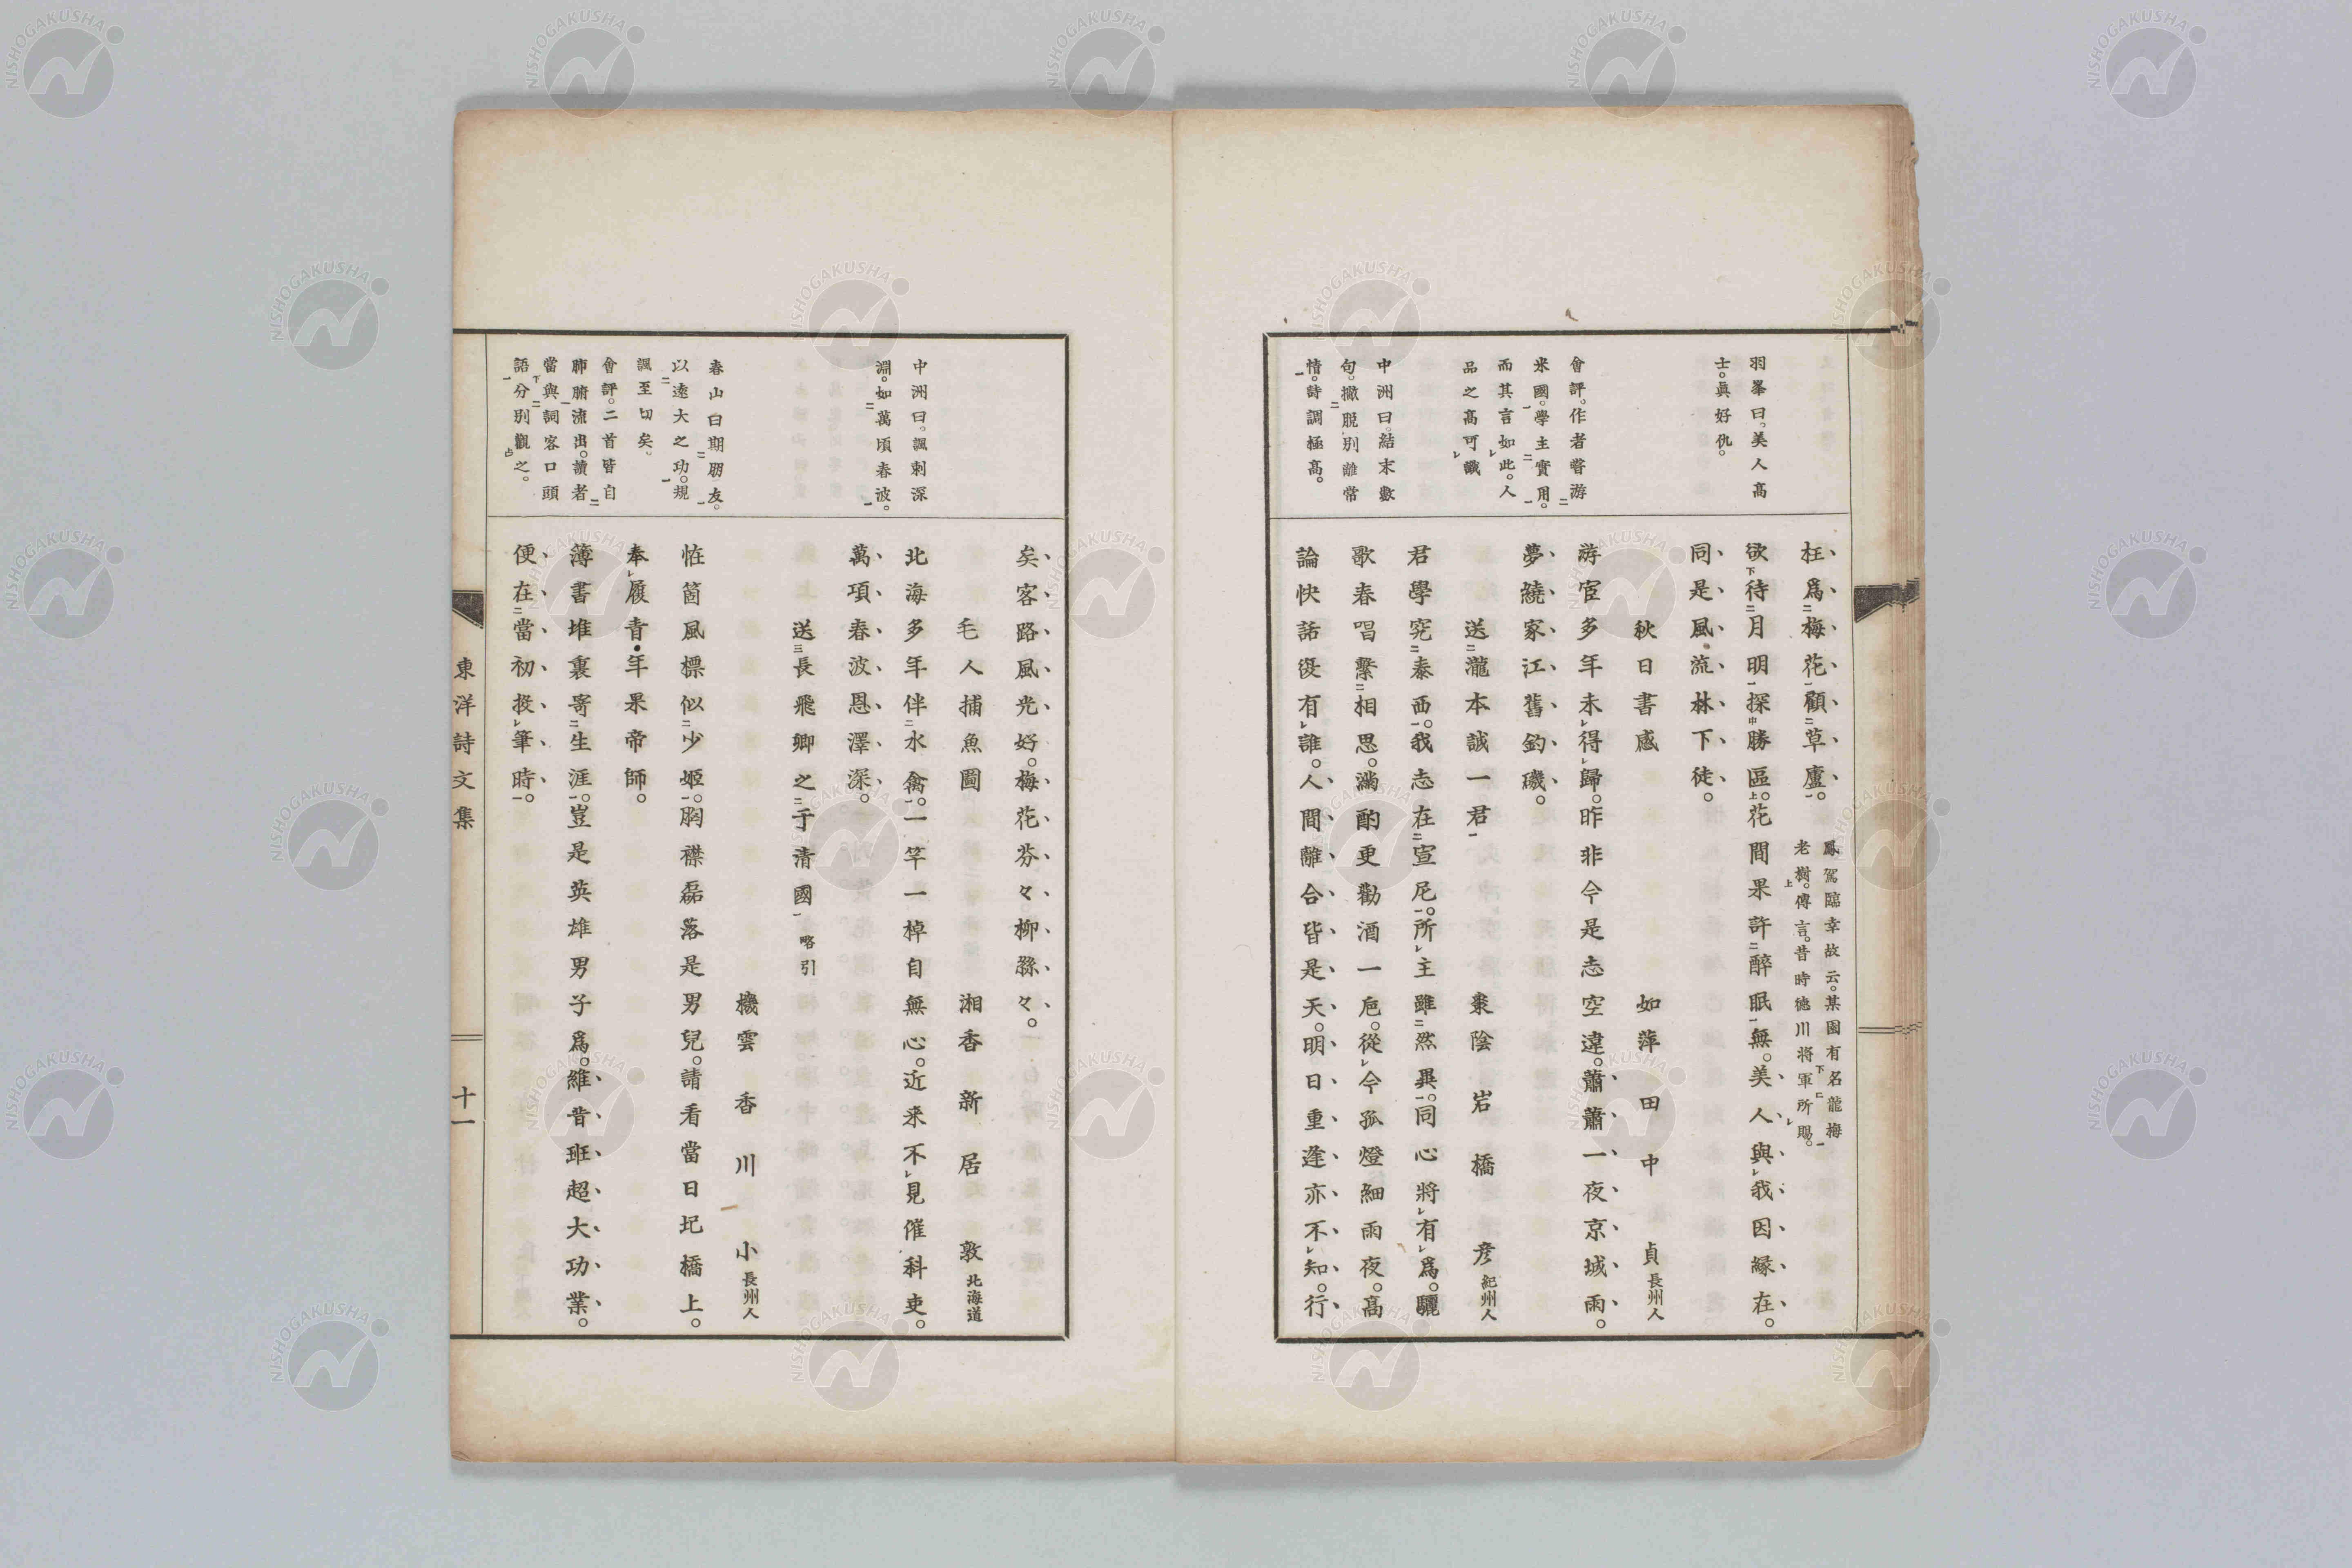 羽峯曰。美人高
士。眞好仇。
會評。作者嘗游
米國。學主實用。
而其言如此。人
品之高可識
中洲曰。結末數
句。撇脫別離常
情。詩調極高。
枉爲梅花顧草廬。
鳳駕臨幸故云。某園有名龍梅
老樹。傳言。昔時德川將軍所賜。
欲待月明探勝區。花間果許醉眠無。美人與我因緣在。
同是風流林下徒。
秋日書感 如萍 田中 貞 長州人
游宦多年未得歸。昨非今是志空違。蕭蕭一夜京城雨。
夢繞家江舊釣磯。
送瀧本誠一君 棗陰 岩橋 彥 紀州人
君學究泰西。我志在宣尼。所主雖然異。同心將有爲。驪
歌春唱繫相思。滿酌更勸酒一巵。從今孤燈細雨夜。高
論快話復有誰。人間離合皆是天。明日重逢亦不知。行
中洲曰。諷刺深
淵。如萬頃春波。
春山曰期朋友。
以遠大之功。規
諷至切矣。
會評。二首皆自
肺腑流出。讀者
當與詞客口頭
語分別觀之。
矣客路風光好。梅花芬々柳緜々。
毛人捕魚圖 湘香 新居 敦 北海道
北海多年伴水禽。一竿一棹自無心。近來不見催科吏。
萬頃春波恩澤深。
送長飛卿之于清國 略引
機雲 香川 小 長州人
恠箇風標似少姬。胸襟磊落是男兒。請看當日圯橋上。
奉履青年果帝師。
簿書堆裏寄生涯。豈是英雄男子爲。維昔班超大功業。
便在當初投筆時。
東洋詩文集
十一
NISHOGAKUSHA